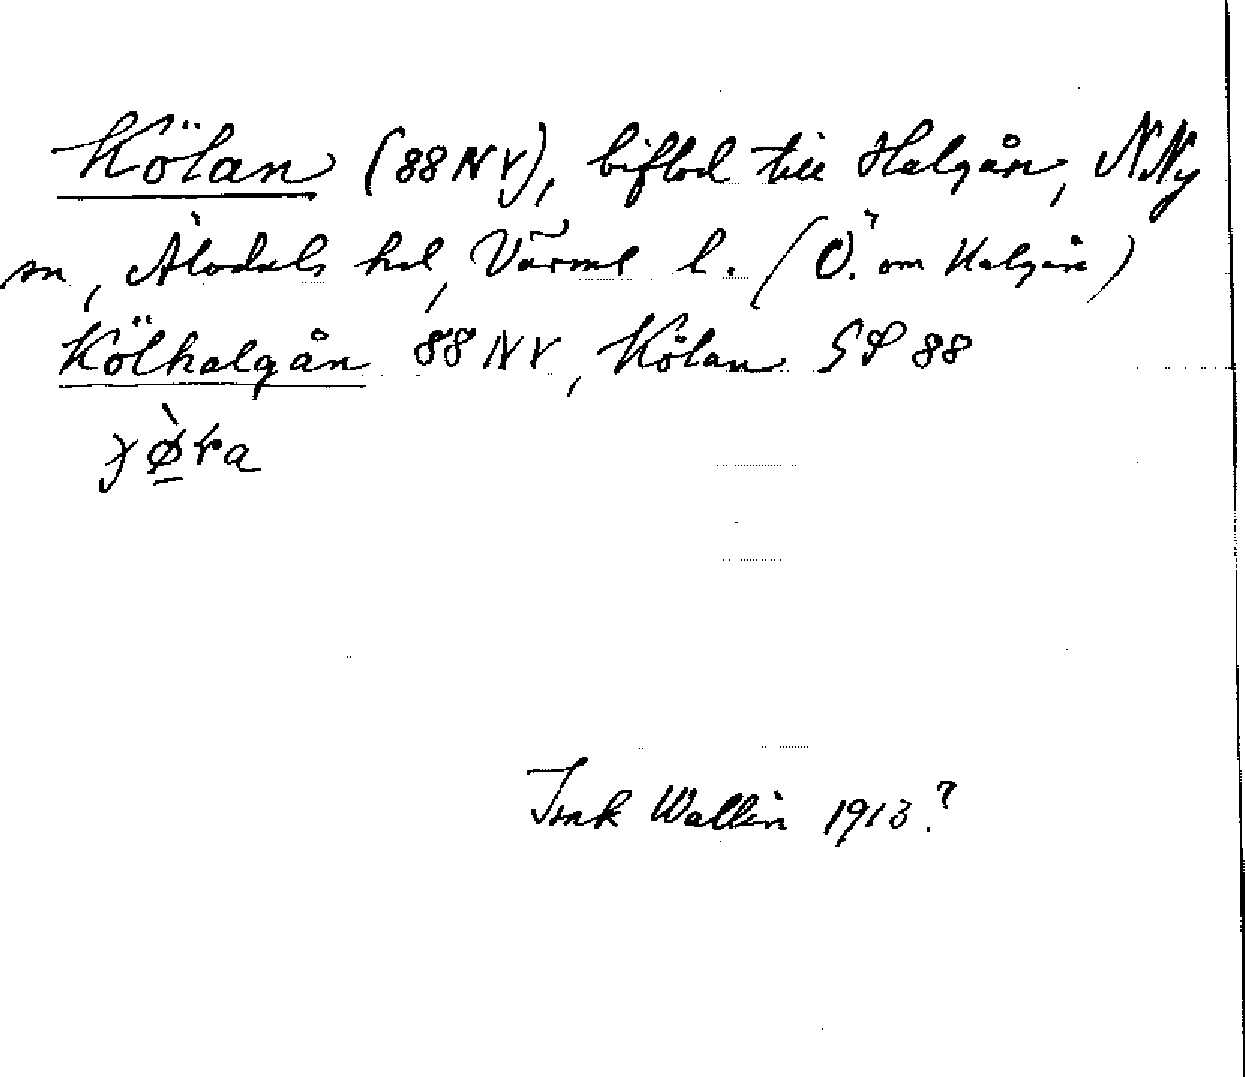 Kölan (88 NV), biflod till Halgån, N. Ny
sn, Älvdals hd, Värml l. (Ö. om Halgån)
Kölhalgån 88 NV, Kölan GS 88
Isak Wallin 1913?